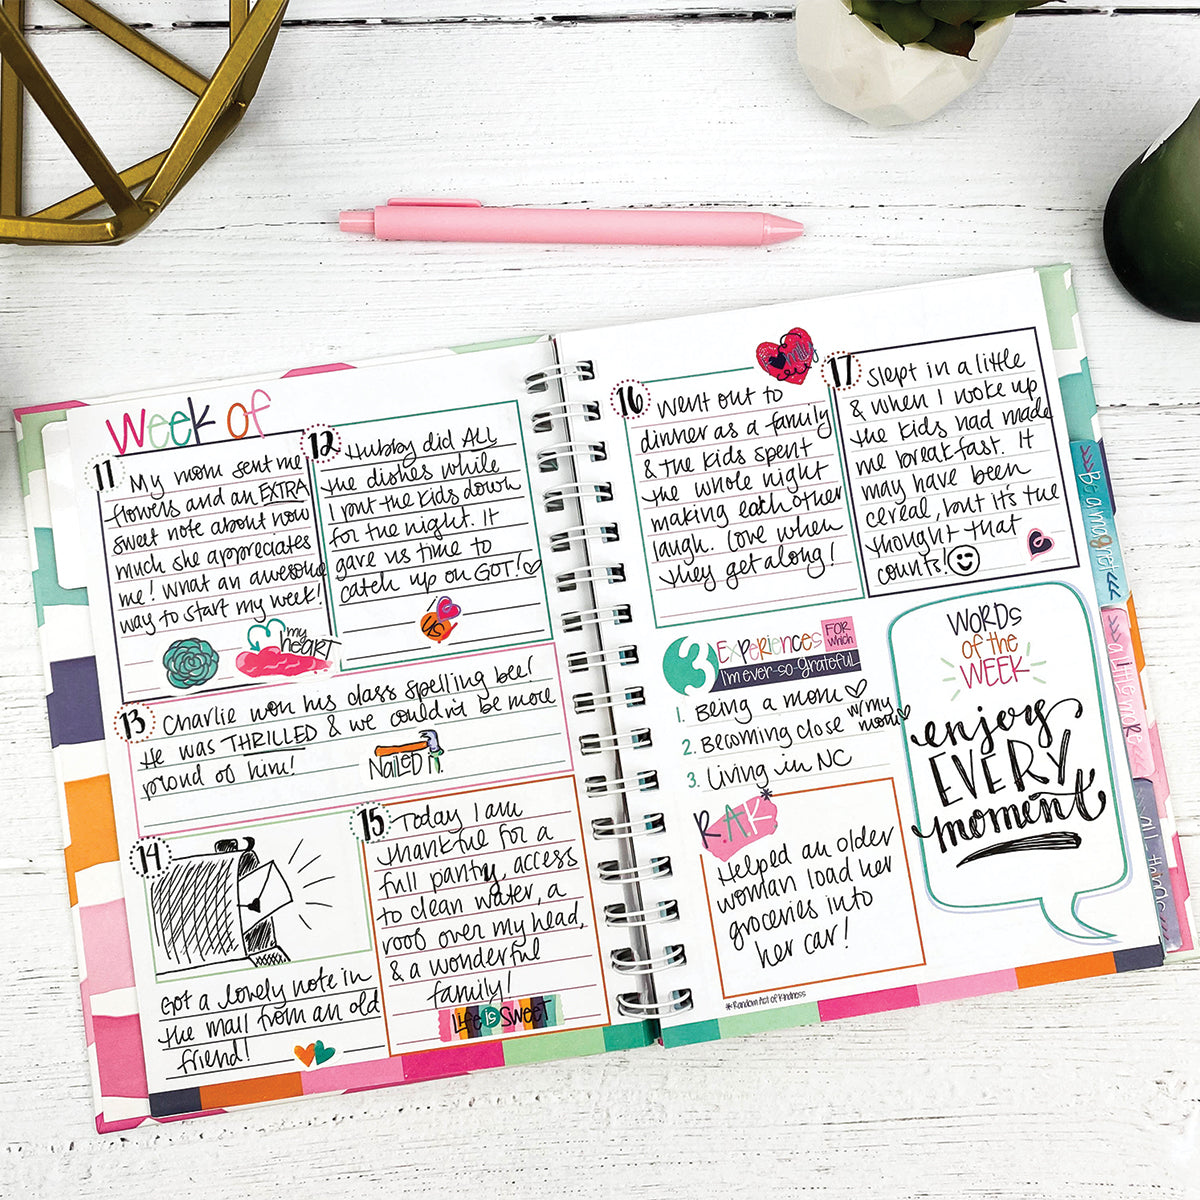 Week of
11
My mom sent me
flowers and an EXTRA
sweet note about how
much she appreciates
me! What an awesome
way to start my week!
my
heart
12
Hubby did ALL
the dishes while
I put the kids down
for the night. It
gave us time to
catch up on GOT!♡
us!
13
Charlie won his class spelling bee!
He was THRILLED & we couldn't be more
proud of him!
Nailed it.
14
Got a lovely note in
the mail from an old
friend!
15
Today I am
thankful for a
full pantry, access
to clean water, a
roof over my head,
& a wonderful
family!
Life is Sweet
family
16
Went out to
dinner as a family
& the kids spent
the whole night
making each other
laugh. Love when
they get along!
17
Slept in a little
& when I woke up
the kids had made
me breakfast. It
may have been
cereal, but it's the
thought that
counts!
3 Experiences FOR which
I'm ever-so-grateful
1. Being a mom ♡
2. Becoming close w/my mom♡
3. Living in NC
RAK*
Helped an older
woman load her
groceries into
her car!
*Random Act of Kindness
WORDS
of the
WEEK
enjoy
EVERY
moment